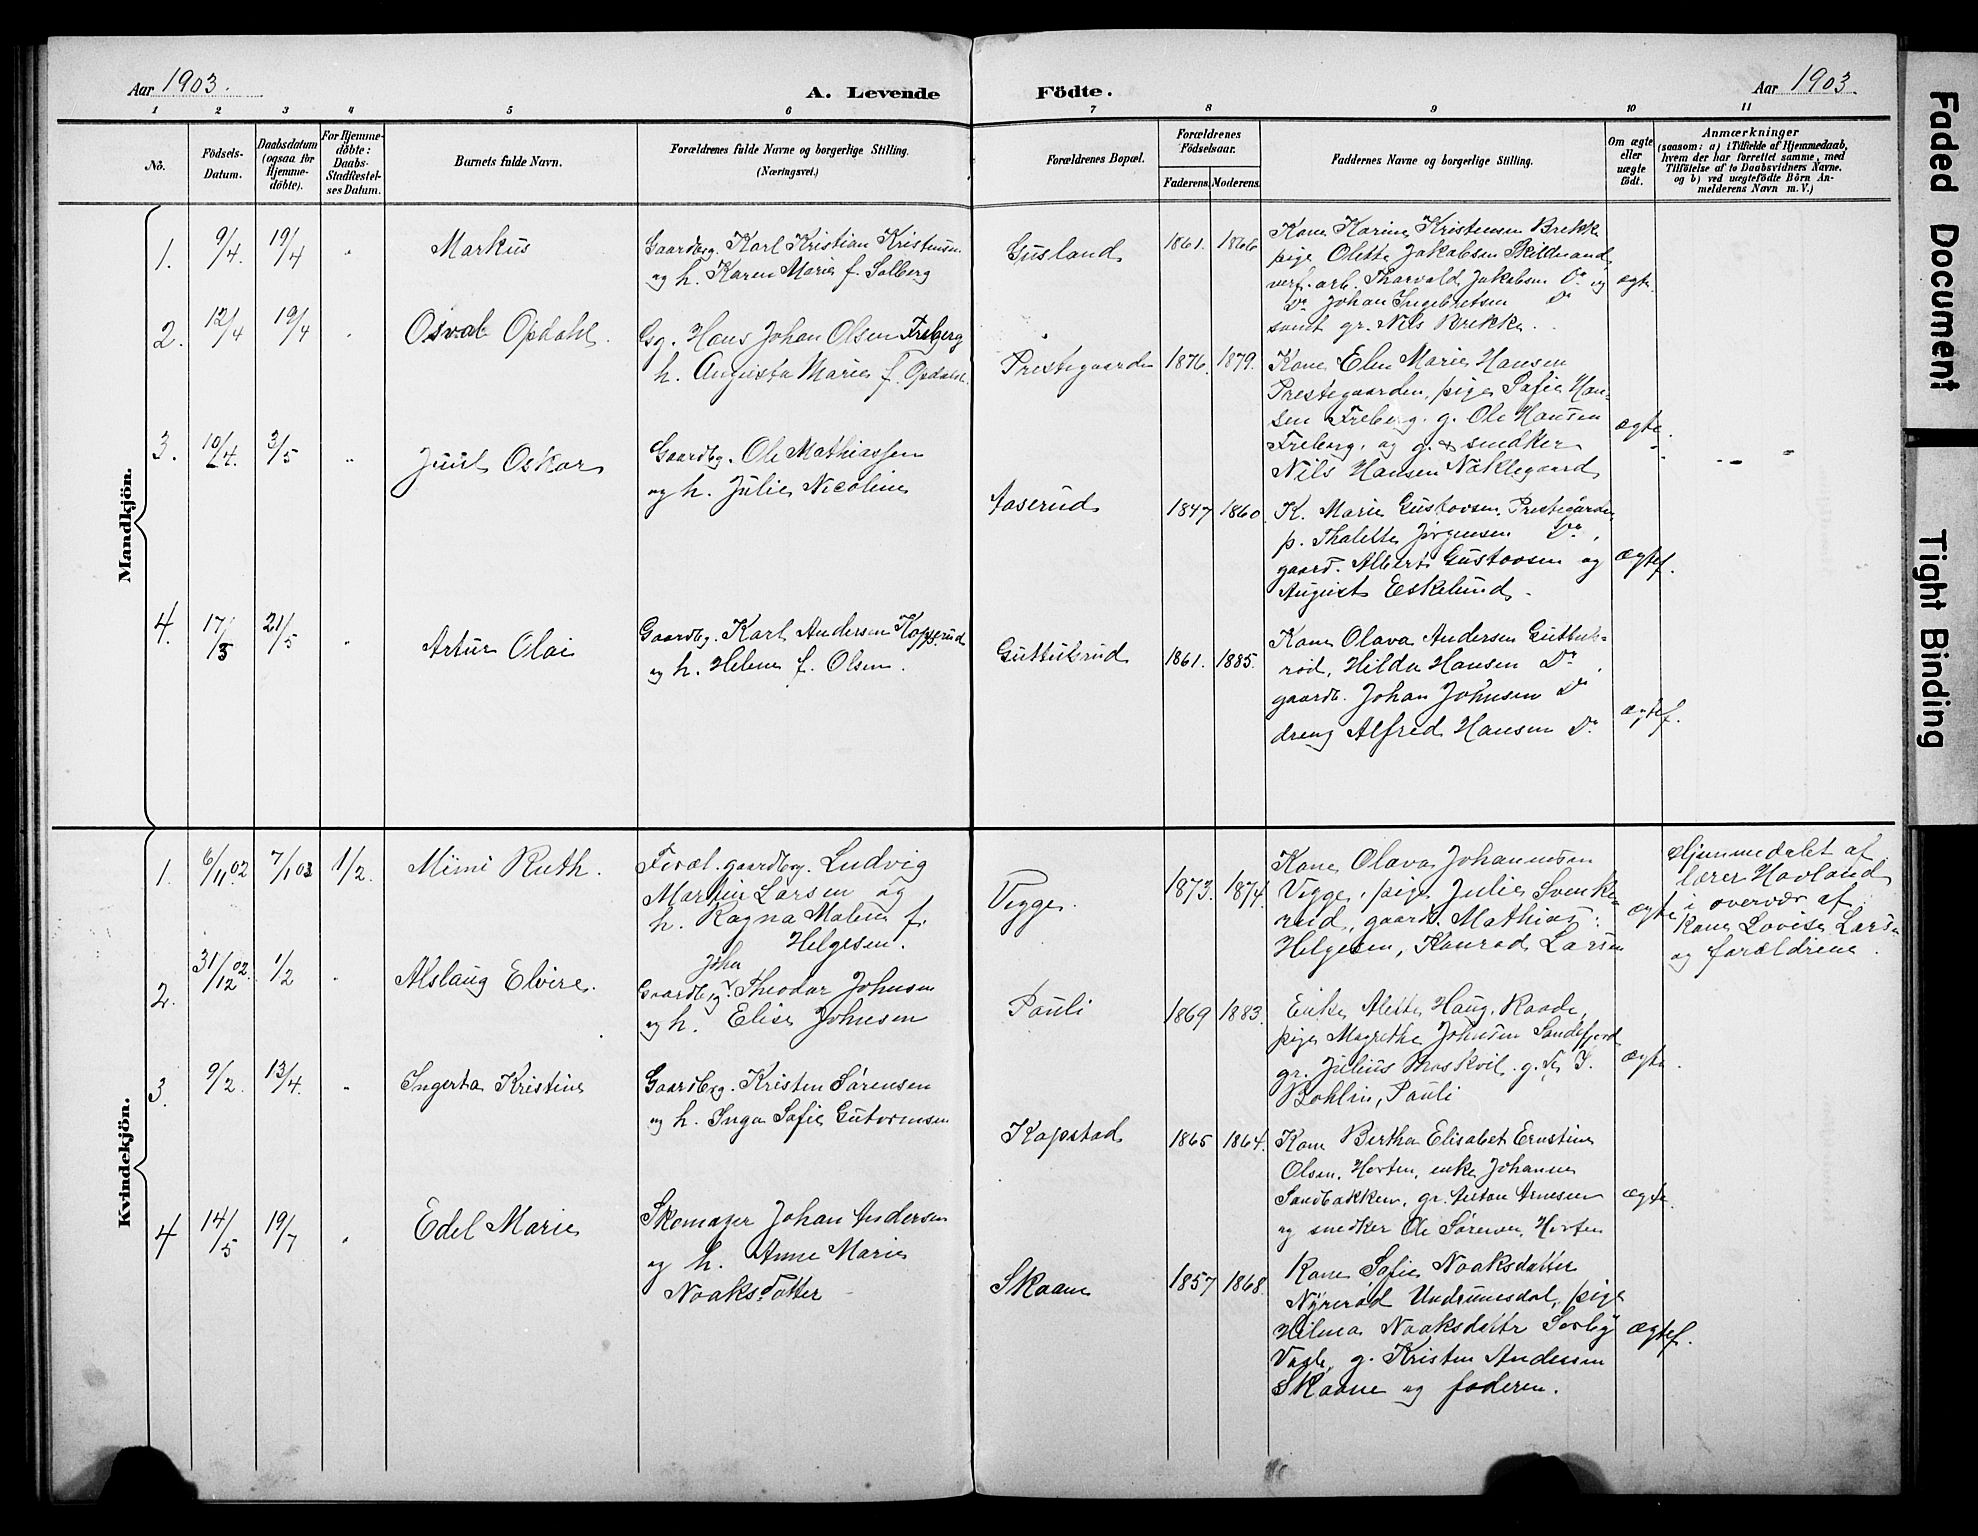 Aar 1903.
A. Levende
Födte.
Aar 1903.
1 2 3 4 5 6 7 8 9 10 11
No.
Födsels-
Datum.
Daabsdatum
(ogsaa for
Hjemme-
döbte).
For Hjemme-
döbte:
Daabs-
Stadfæstel-
ses Datum.
Barnets fulde Navn.
Forældrenes fulde Navne og borgerlige Stilling.
(Næringsvei.)
Forældrenes Bopæl.
Forældrenes
Födselsaar.
Faderens. Moderens.
Faddernes Navne og borgerlige Stilling.
Om ægte
eller
uægte
födt.
Anmærkninger
(saasom: a) i Tilfælde af Hjemmedaab,
hvem der har forrettet samme, med
Tilföielse af to Daabsvidners Navne.
og b) ved uægtefödte Börn An-
melderens Navn m. V.)
Mandkjön.
1. 9/4. 19/4 "
Markus
Gaardbrg. Karl Kristian Kristensen
og h. Karen Marie f. Solberg
Gusland
1861. 1866.
Kone Karine Kristensen Brekke
pige Olette Jakobsen Skildvand,
verf.arb. Tharvald Jakobsen Do og
Do Johan Ingebretsen Do
samt gr. Nils Brekke.
ægte.
2. 12/4 19/4 "
Osval Opdahl.
Gg. Hans Johan Olsen Freberg
h. Augusta Marie f. Opdahl.
Prestegaarden
1876. 1879.
Kone Elen Marie Hansen
Prestegaarden, pige Sofie Han-
sen Freberg. g. Ole Hansen
Freberg, og g. & snedker
Nils Hansen Nöklegaard
ægte.
3. 19/4. 3/5 "
Juul Oskar
Gaardbg. Ole Mathiassen
og h. Julie Nicoline
Aaserud
1847 1860.
K. Marie Gustavsen, Prestegården
p. Thalette Jørgensen Do,
gaard. Albert Gustavsen og
August Eskelund.
ægtef.
4. 17/3 21/5 "
Artur Olai
Gaardbg. Karl Andersen Kopperud
og h. Helene f. Olsen.
Guttulsrud
1861. 1885.
Kone Olava Andersen Guttuls-
rød, Hilda Hansen Do,
gaardb. Johan Johnsen Do
dreng Alfred Hansen Do
ægtef.
Kvindekjön.
1. 6/11.02 7/1 03 1/2.
Mimi Ruth.
Foræl. gaardbrg. Ludvig
Martin Larsen og
h. Ragna Malene f.
Helgesen.
Vegge.
1873. 1874.
Kone Olava Johannesen
Vegge, pige Julie Svenke-
rud, gaardb. Mathias
Helgesen, Konrad Larsen
ægte
Hjemmedøbt af
lærer Havland
i overvær af
Kone Lovise Larsen
og forældrene.
2. 31/12 02. 1/2 "
Aslaug Elvire.
Joha
Gaardbrg Theodor Johnsen
og h. Elise Johnsen
Pauli
1869 1883.
Enke Alette Haug, Raade,
pige Magrethe Johnsen Sandefjord
gr. Julius Moskvil. g. F. I.
Bohlin, Pauli
ægte.
3. 9/2. 13/4. "
Ingerta Kristine
Gaardbrg. Kristen Sørensen
og h. Inga Sofie Gutormsen
Kopstad
1865 1864.
Kone Bertha Elisabet Ernstine
Olsen, Horten, enke Johanne
Sandbakken, gr. Anton Arnesen
og snedker Ole Sørensen, Horten
ægte.
4 14/5 19/7 "
Edel Marie
Skomager Johan Andersen
og h. Anne Marie
Noaksdatter
Skaane
1857 1868.
Kone Sofie Noaksdatter
Nyrerød Undrumsdal, pige
Hilma Noaksdattr Sorby
Vaale, g. Kristen Andersen
Skaane og faderen.
ægtef.
Faded Document
Tight Binding